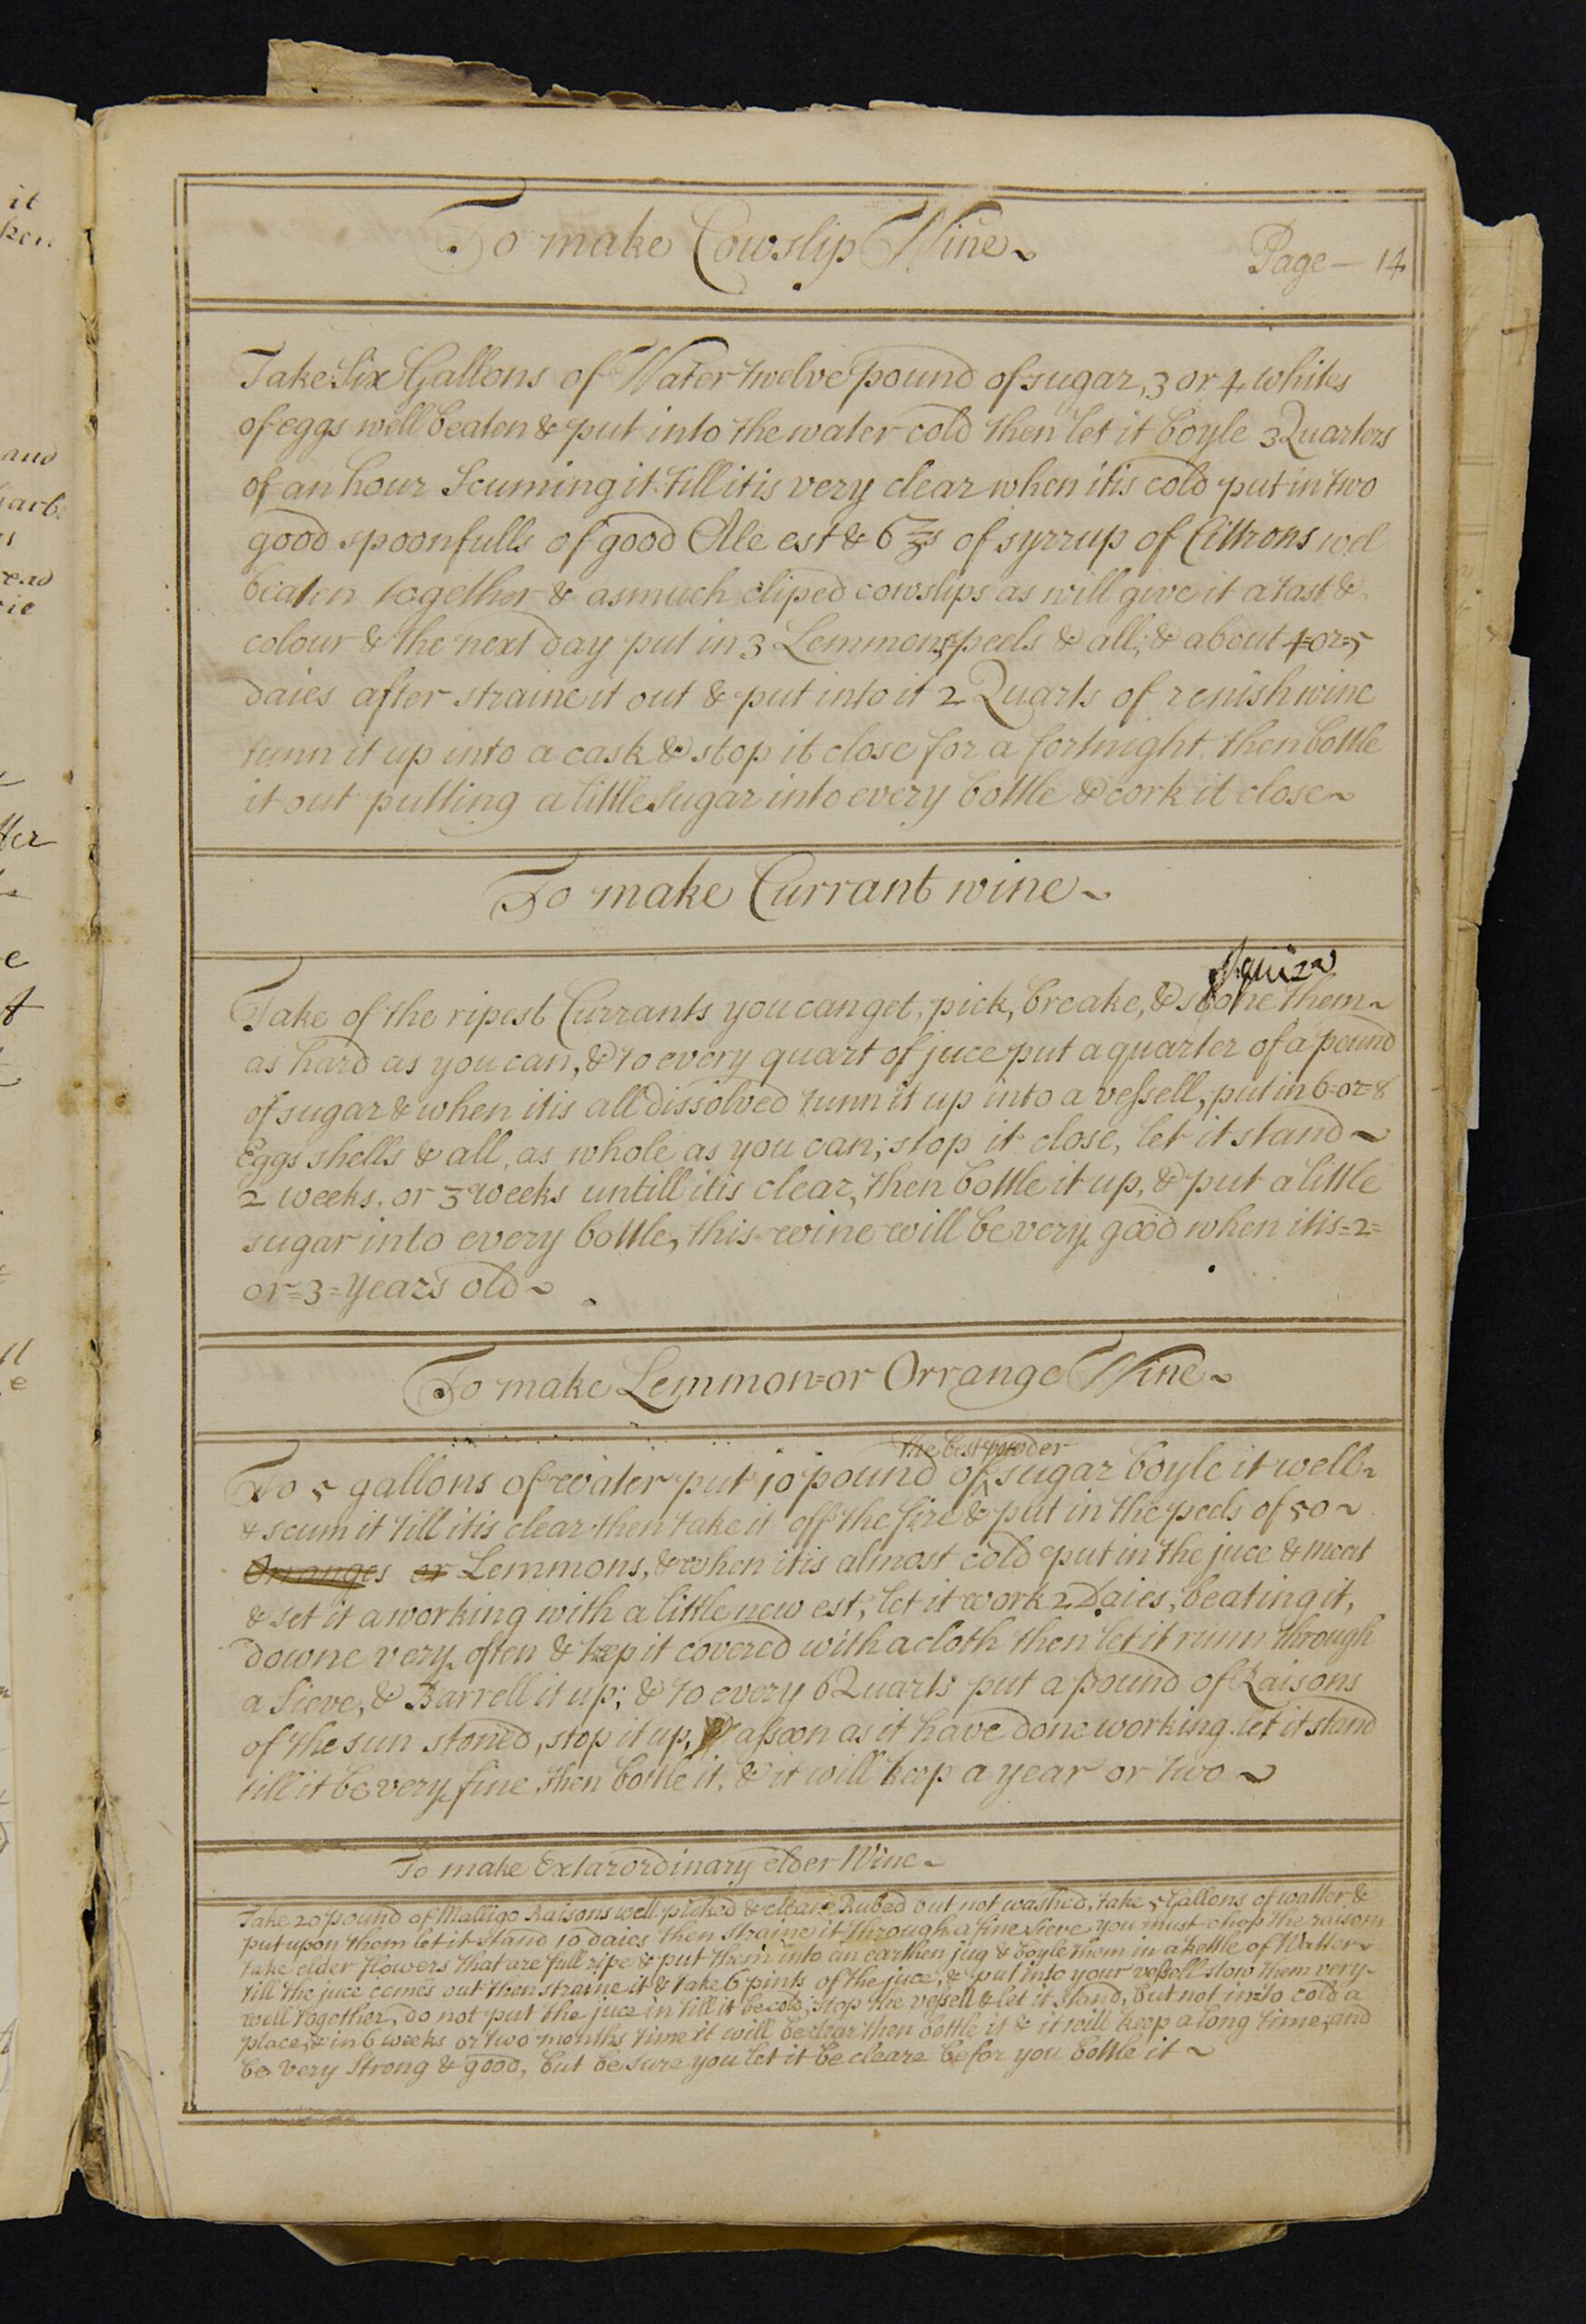 To make Cowslip Wine~
Page — 14
Take Six Gallons of Water twelve pound of sugar, 3 or 4 whites
of eggs well beaten & put into the water cold then let it boyle 3 Quarters
of an hour Scuming it till it is very clear when itis cold put in two
good spoonfulls of good Ale est & 6 ℥s of syrrup of Cittrons wel
beaten together & asmuch cliped cowslips as will give it a tast &
colour & the next day put in 3 Lemmons, peels & all; & about 4=or=5
daies after straine it out & put into it 2 Quarts of renish wine
tunn it up into a cask & stop it close for a fortnight then bottle
it out putting a little Sugar into every bottle & cork it close~
To make Currant wine~
Squize
Take of the ripest Currants you can get, pick, breake, & stone them~
as hard as you can, & to every quart of juce put a quarter of a pound
of sugar & when itis all dissolved tunn it up into a vessell, put in 6=or=8
Eggs shells & all, as whole as you can; stop it close, let it stand~
2 weeks, or 3 weeks untill itis clear, then bottle it up, & put a little
sugar into every bottle, this wine will be very good when itis=2=
or=3=years old~
To make Lemmon=or Orrange Wine~
the best powder
To 5 gallons of water put 10 pound of sugar boyle it well~
& scum it till itis clear then take it off the fire & put in the peels of 50~
Orranges or Lemmons, & when itis almost cold put in the juce & meat
& set it aworking with a little new est, let it work 2 Daies, beating it,
downe very often & keep it covered with a cloth then let it runn through
a Sieve, & Barrell it up; & to every 6 Quarts put a pound of Raisons
of the sun stoned, stop it up, assoon as it have done working let it stand
till it be very fine then bottle it, & it will keep a year or two~
To make Extarordinary elder Wine~
Take 20 pound of Malligo Raisons well picked & cleane Rubed but not washed, take 5 Gallons of watter &
put upon them let it stand 10 daies then straine it through a fine Sieve you must chop the raisons
take elder flowers that are full ripe & put them into an earthen jug & boyle them in a kettle of Watter~
till the juce comes out then straine it & take 6 pints of the juce, & put into your vessell stow them very~
well together, do not put the juce in till it be cold; stop the vessell & let it stand, but not in to cold a
place, & in 6 weeks or two months time it will be clear then bottle it & it will keep a long time, and
be very strong & good, but be sure you let it be cleare befor you bottle it~